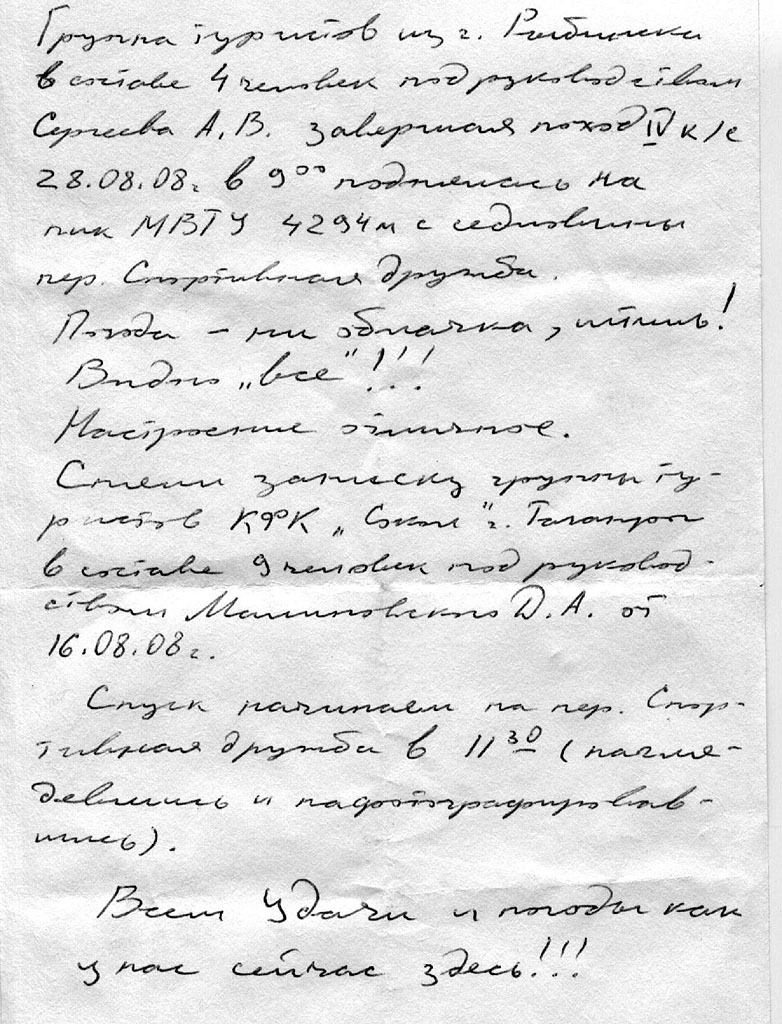 Группа туристов из г. Рыбинска
в составе 4 человек под руководством
Сергеева А.В. завершая поход IV к/с
28.08.08г в 9⁰⁰ поднялась на
пик МВТУ 4294м с седловины
пер. Спортивная дружба.
Погода – ни облачка, штиль!
Видно „все"!!!
Настроение отличное.
Сняли записку группы ту-
ристов КФК „Сокол" г. Таганрог
в составе 9 человек под руковод-
ством Малиновского Д.А. от
16.08.08г.
Спуск начинаем на пер. Спор-
тивная дружба в 11³⁰ (нагля-
девшись и нафотографировав-
шись).
Всем Удачи и погоды как
у нас сейчас здесь!!!